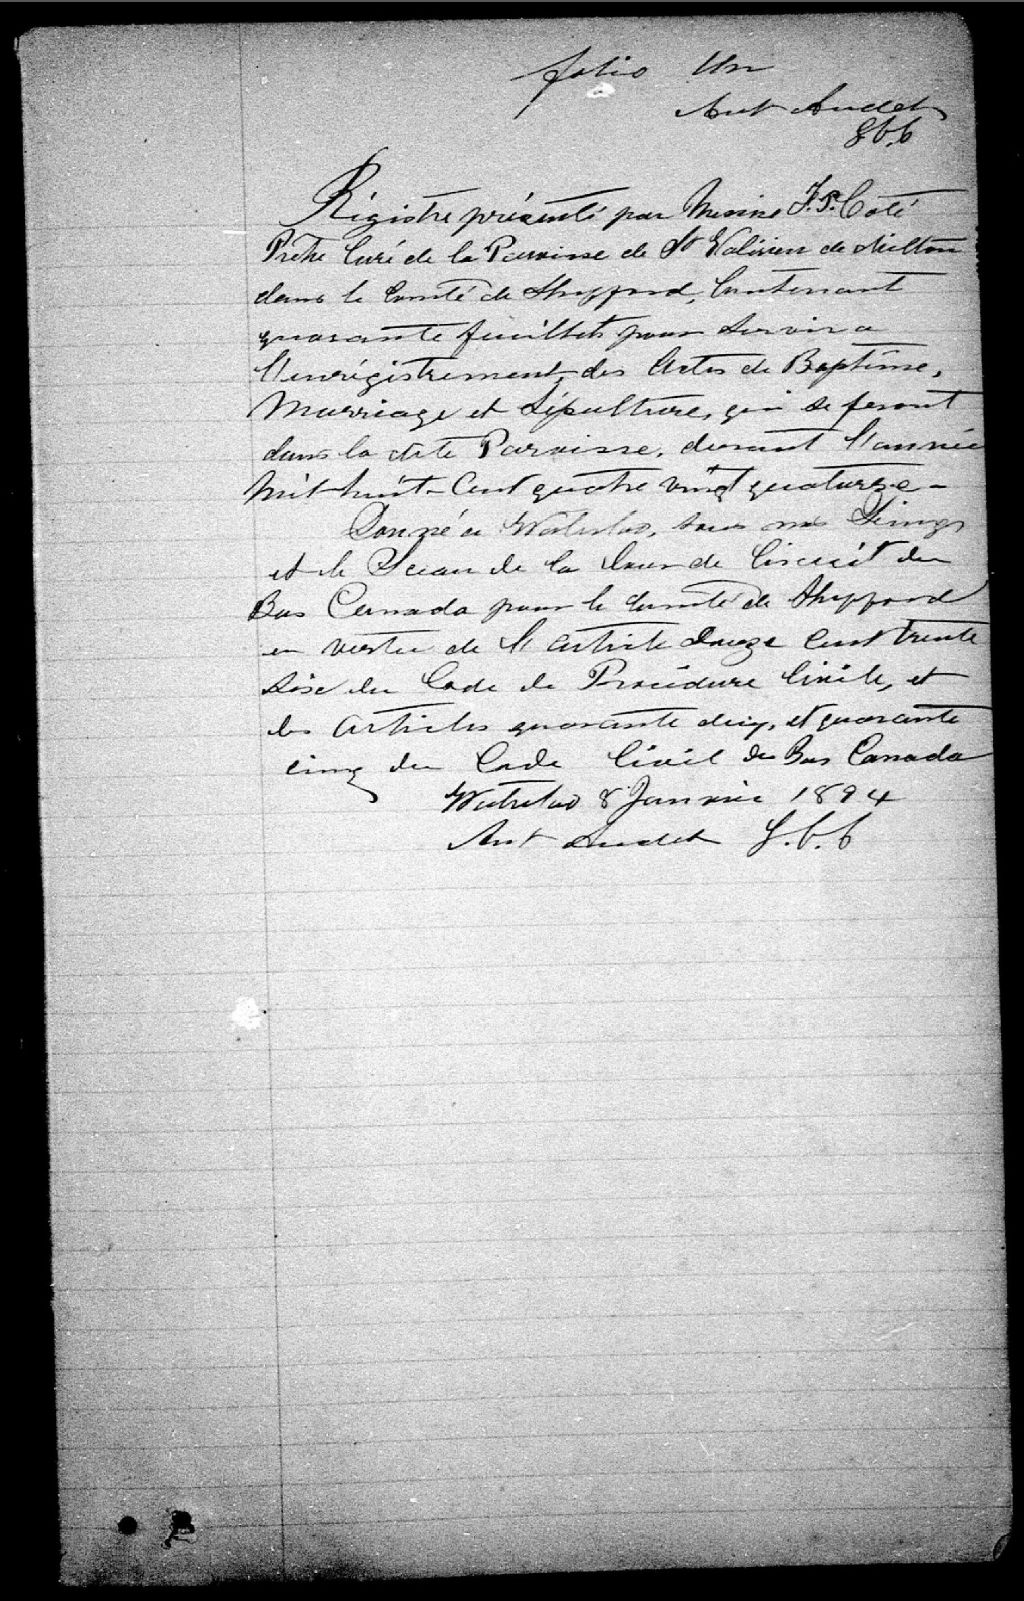 folio Un
Ant Audet
g.c.c
Régistre présenté par Messire J. P. Coté
Prêtre Curé de la Paroisse de St Valérien de Milton
dans le Comté de Shefford, Contenant
quarante feuillets pour servir a
l'enrégistrement des Actes de Baptême,
Marriage et Sépulture, qui se feront
dans la dite Paroisse, durant l'année
Mil-huit-Cent quatre vingt quatorze -
Donné a Waterloo, sous mes Seings
et le Sceau de la Cour de Circuit du
Bas Canada pour le Comté de Shefford
en vertu de l'article Douze Cent trente
Six du Code de Procédure Civile, et
les articles quarante deux, et quarante
cinq du Code Civil du Bas Canada
Waterloo 8 Janvier 1894
Ant Audet g.c.c